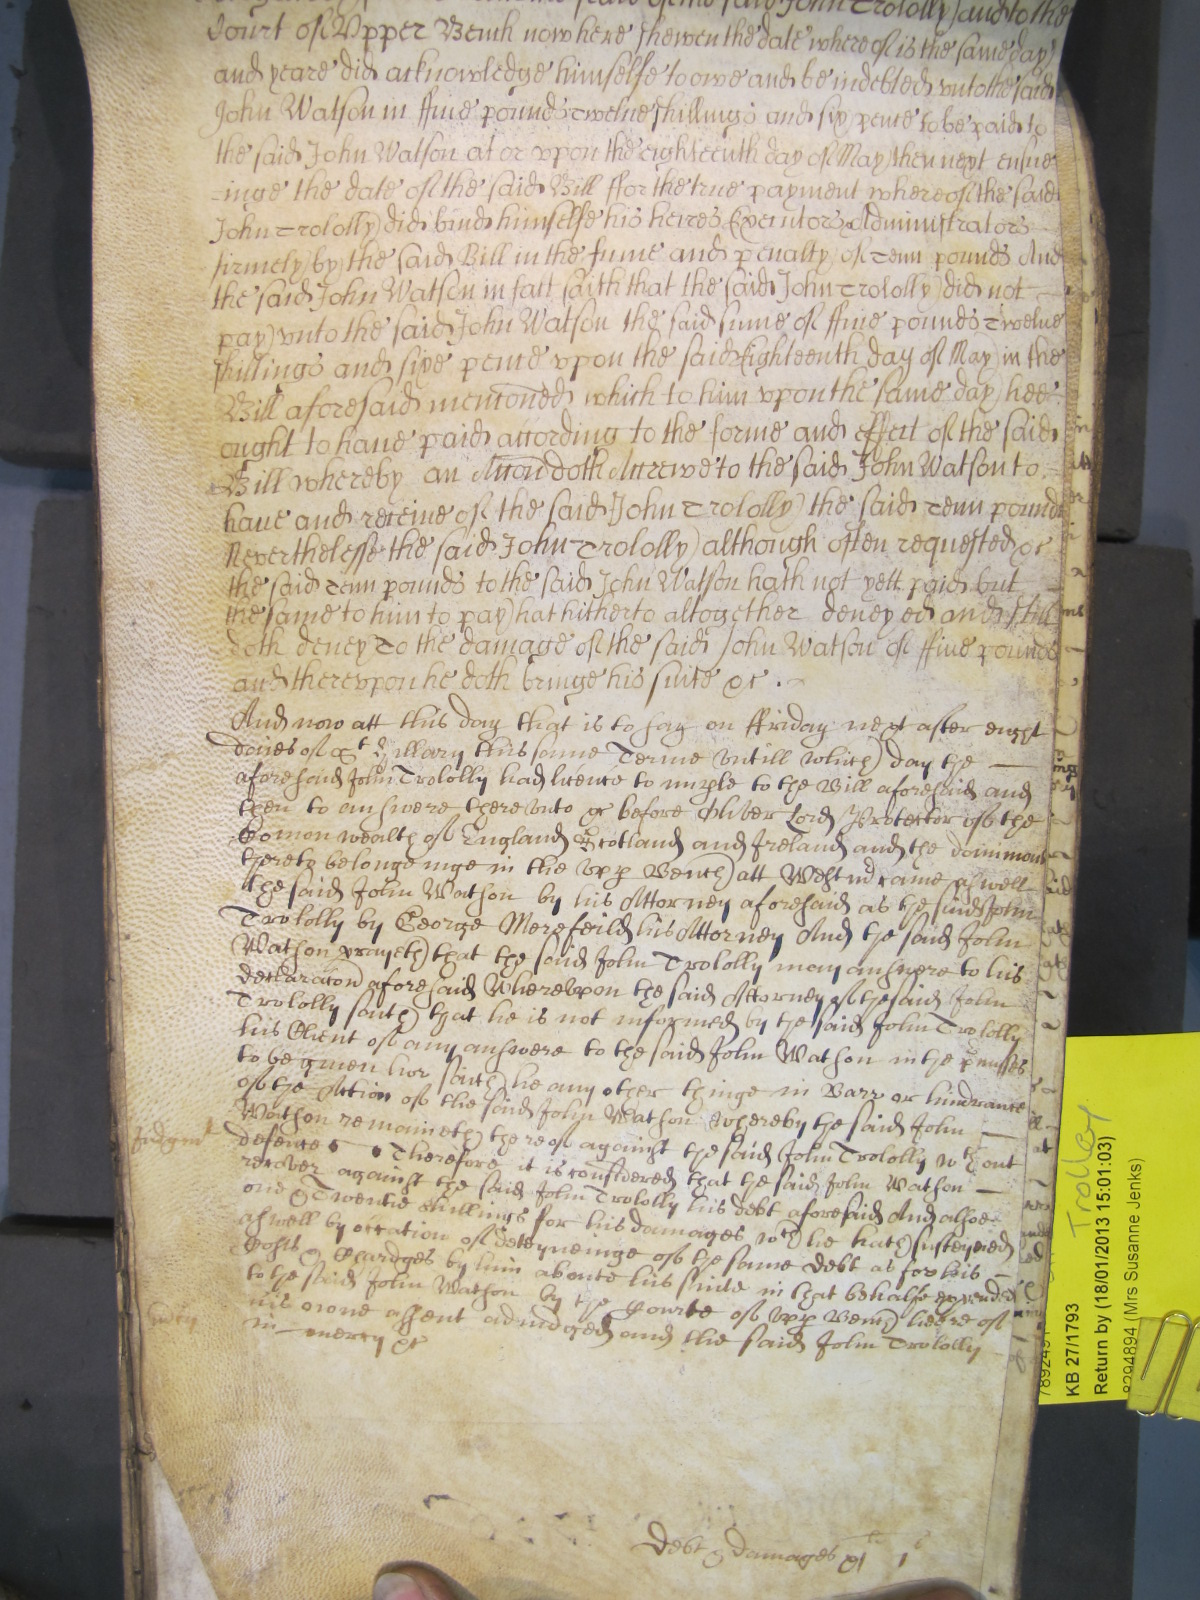 the said John Trololly) and to the
Court of Upper Bench now here shewen the date whereof is the same day)
and yeare did acknowledge himselfe to owe and be indebted unto the said
John Watson in ffive pounds twelve shillings and six pence to be paid to
the said John Watson at or upon the eighteenth day of May then next ensue
-inge the date of the said Bill ffor the true payment whereof the said
John Trololly) did bind himselfe his heires Executors Administrators
firmely by) the said Bill in the sume and penalty) of Tenn pounds And
the said John Watson in fact saith that the said John Trololly) did not
pay) unto the said John Watson the said sume of ffive pounds Twelve
shillings and sixe pence upon the said Eighteenth day of May) in the
Bill aforesaid mencōned which to him upon the same day) hee
ought to have paid according to the forme and effect of the said
Bill whereby an Accōn doth Accrewe to the said John Watson to
have and receive of the said John Trololly) the said Tenn pounds
Neverthelesse the said John Trololly) although often requested &c
the said Tenn pounds to the said John Watson hath not yett paid but
the same to him to pay) hat hitherto altogether deneyed and still
doth deney To the damage of the said John Watson of ffive pounds
and thereupon he doth bringe his suite &c .
And now att this day that is to say on ffriday next after eight
daies of St Hillary this same Terme untill which) day the
aforesaid John Trololly had licence to imple to the Bill aforesaid and
then to answere thereunto &c before Oliver Lord Protector of the
Comon wealth of England Scotland and Ireland and the dominions
thereto belongeinge in the Upp Bench) att Westm̄ came aswell
the said John Watson by his Attorney aforesaid as the said John
Trololly by George Merefeild his Attorney And the said John
Watson prayeth) that the said John Trololly may answere to his
declaracōn aforesaid Whereupon the said Attorney of the said John
Trololly saith) that he is not informed by the said John Trololly
his Client of any answere to the said John Watson in the p̄misses
to be given nor saith) he any other thinge in Barr or hindrance
of the Action of the said John Watson whereby the said John
Watson remaineth) thereof against the said John Trololly wthout
Judgmt
defence Therefore it is considered that the said John Watson
recover against the said John Trololly his debt aforesaid And alsoe
one & Twentie shillings for his damages wch) he hath) susteyned
aswell by occation of deteyneinge of the same debt as for his
Costs & Chardges by him aboute his suite in that behalfe expended
to the said John Watson by the Courte of Upp Bench) heere of
his owne assent adiudged and the said John Trololly
mercy
in mercy &c
Debt & damages
Trolley
KB 27/1793
Return by (18/01/2013 15:01:03)
8294894 (Mrs Susanne Jenks)